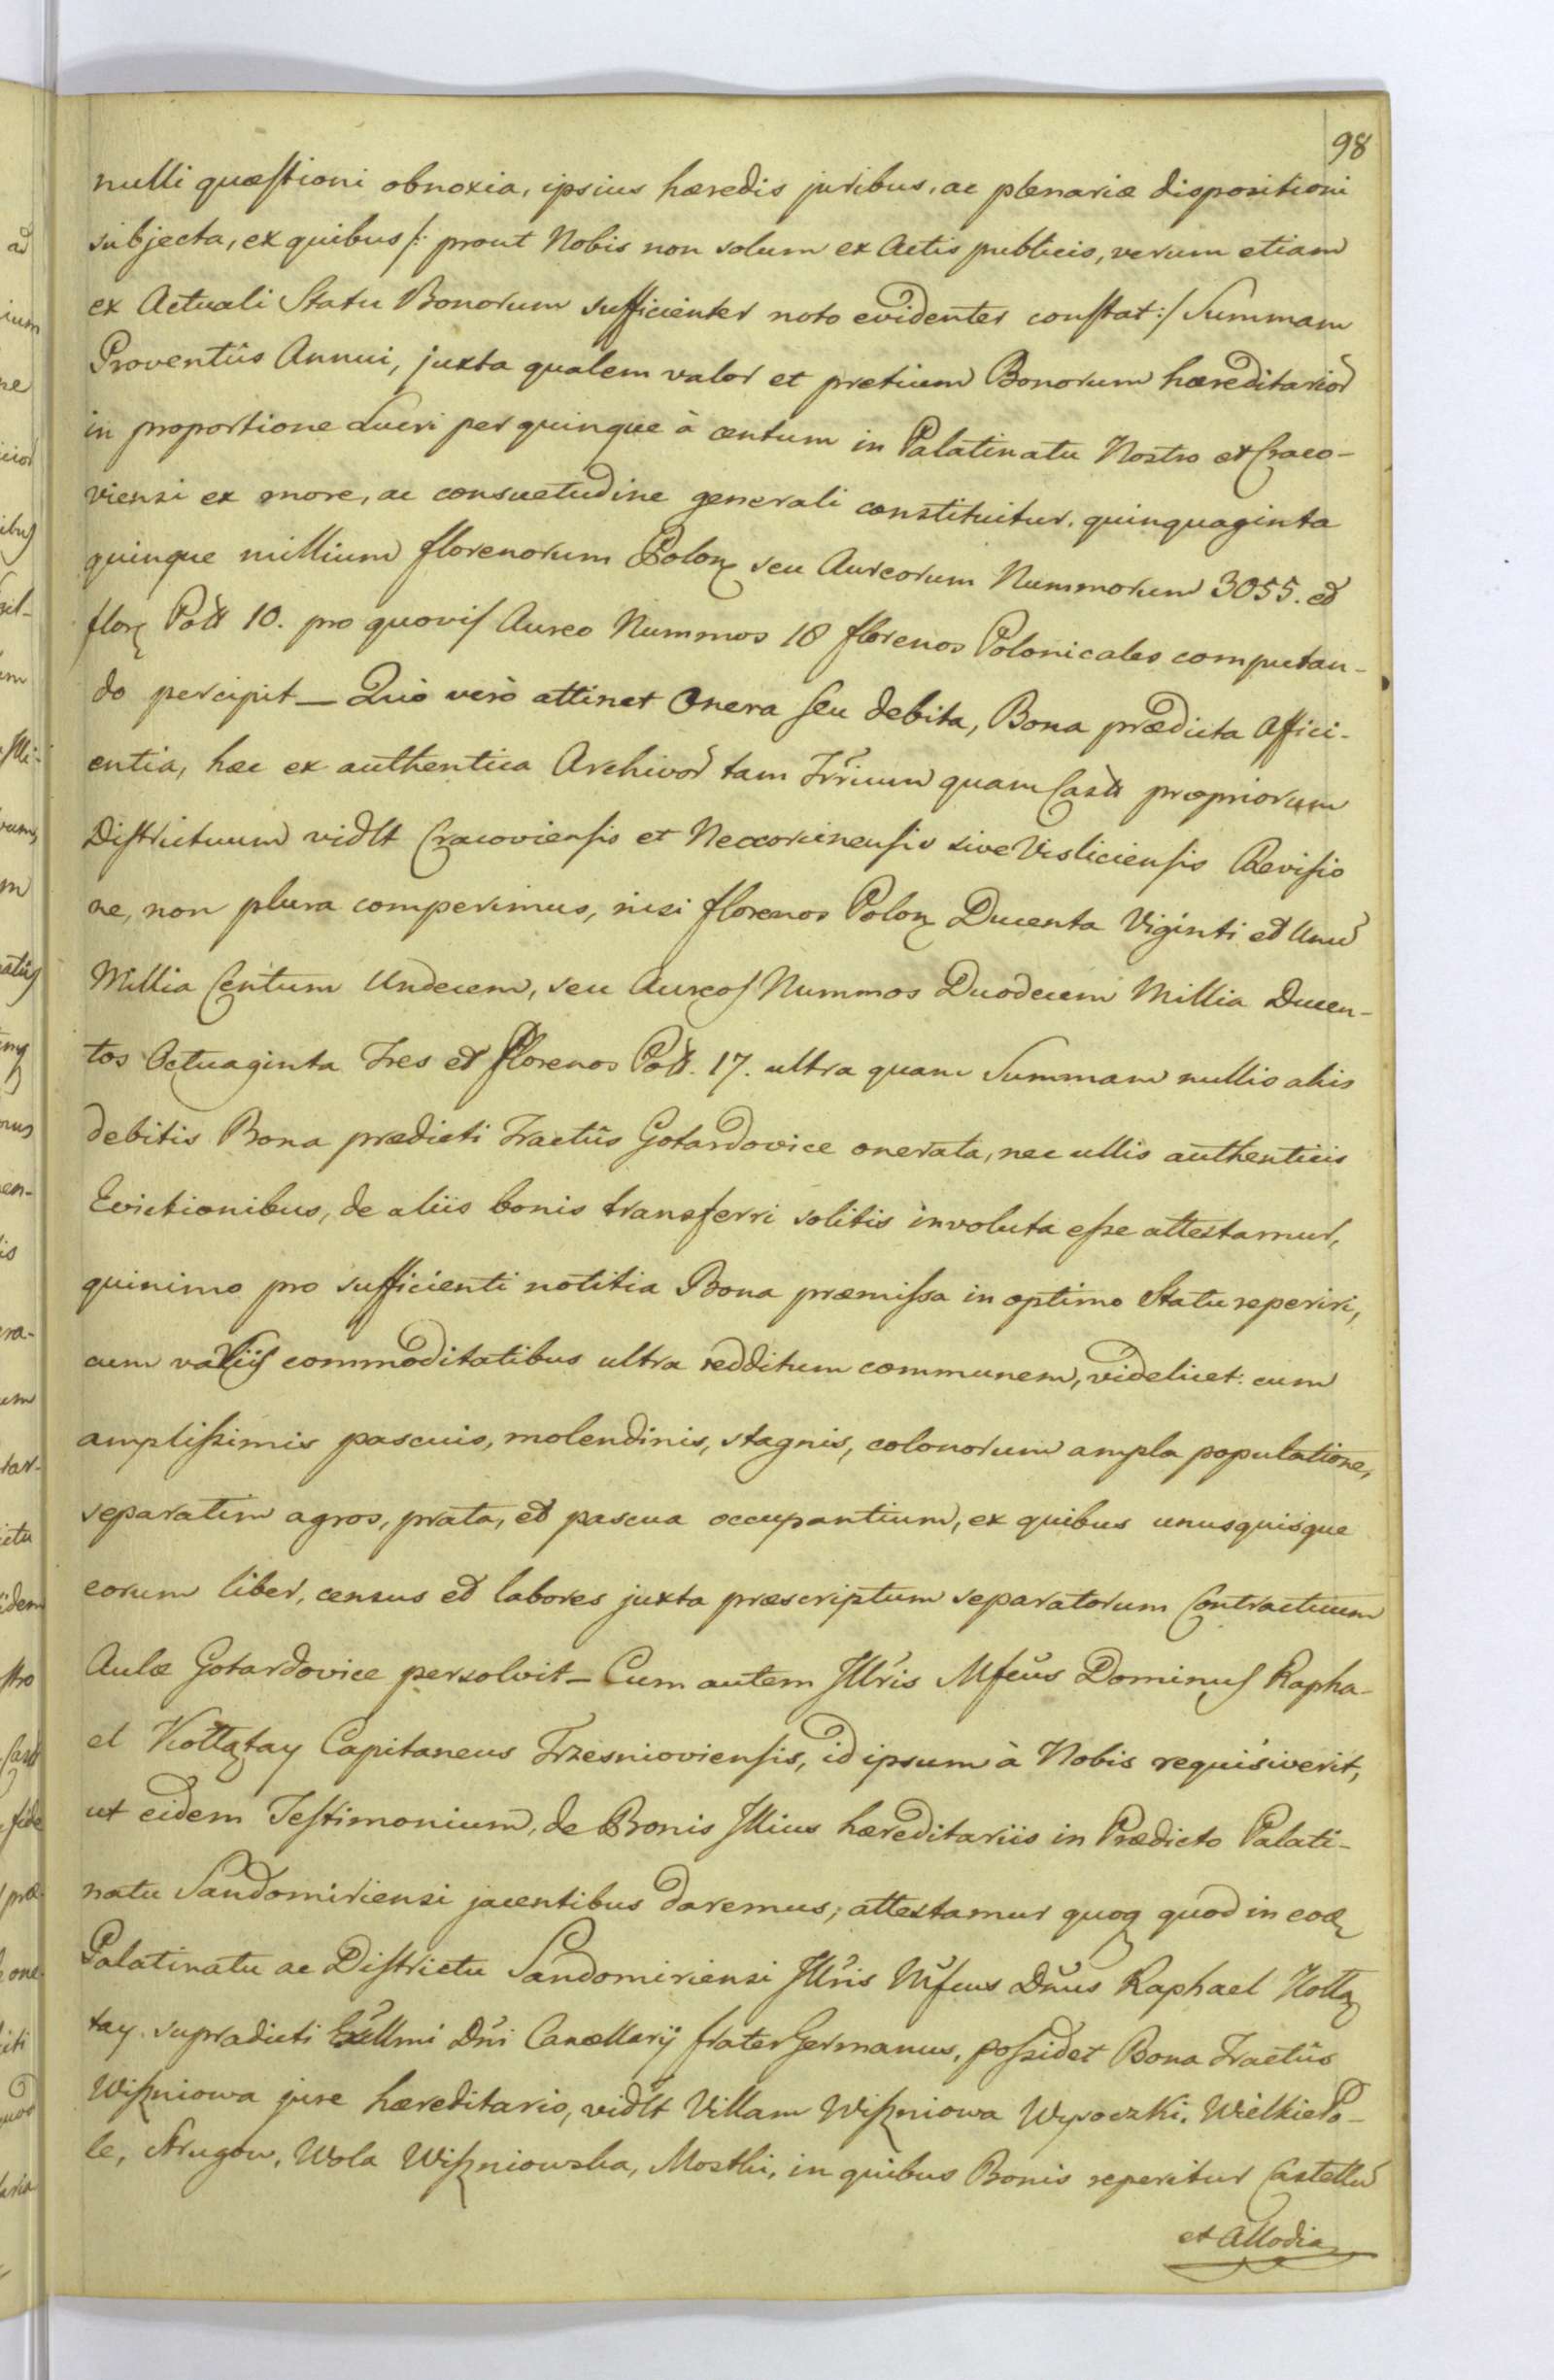 98
nulli quæstioni obnoxia, ipsius hæredis juribus, ac plenariæ dispositioni
subjecta, ex quibus /: prout Nobis non solum ex Actis publicis, verum etiam
ex Actuali Statu Bonorum sufficienter noto evidenter constat :/ Summam
Proventûs Annui, juxta qualem valor et pretium Bonorum hæreditarior̃
in proportione Lucri per quinque à centum in Palatinatu Nostro et Craco-
viensi ex more, ac consuetudine generali constituitur, quinquaginta
quinque millium florenorum Polon seu Aureorum Nummorum 3055. et
flor Poll 10. pro quovis Aureo Nummos 18 florenos Polonicales computan-
do percipit — Quò verò attinet Onera seu debita, Bona prædicta affici-
entia, hæc ex authentica Archivor̃ tam Trr̃ium quam Castr propriorum
Districtuum vidlt Cracoviensis et Neocorcinensis sive Visliciensis Revisio
ne, non plura comperimus, nisi florenos Polon Ducenta Viginti et Unũ
Millia Centum Undecem, seu Aureos Nummos Duodecem Millia Ducen-
tos Octuaginta Tres et Florenos Poll. 17. ultra quam Summam nullis aliis
debitis Bona prædicti Tractûs Gotardovice onerata, nec ullis authenticis
Evictionibus, de aliis bonis transferri solitis involuta esse attestamur,
quinimo pro sufficienti notitia Bona præmissa in optimo Statu reperiri,
cum variis commoditatibus ultra redditum communem, videlicet: cum
amplissimis pascuis, molendinis, stagnis, colonorum ampla populatione,
separatim agros, prata, et pascua occupantium, ex quibus unusquisque
eorum liber, census et labores juxta præscriptum separatorum Contractuum
Aulæ Gotardovice persolvit — Cum autem Illr̃is Mfcũs Dominus Rapha-
el Kołłątay Capitaneus Trzesnioviensis, id ipsum à Nobis requisiverit,
ut eidem Testimonium, de Bonis Illius hæreditariis in Prædicto Palati-
natu Sandomiriensi jacentibus daremus, attestamur quoq quod in eod
Palatinatu ac Districtu Sandomiriensi Illr̃is Mfcus Dñus Raphael Kołłą
tay supradicti Exc̃llmi Dñi Cancellarij frater Germanus, possidet Bona Tractûs
Wiszniowa jure hæreditario, vidlt Villam Wiszniowa Wysoczki, Wielkie Po-
le, Strugow, Wola Wiszniowska, Mostki, in quibus Bonis reperitur Castellũ
et Allodia